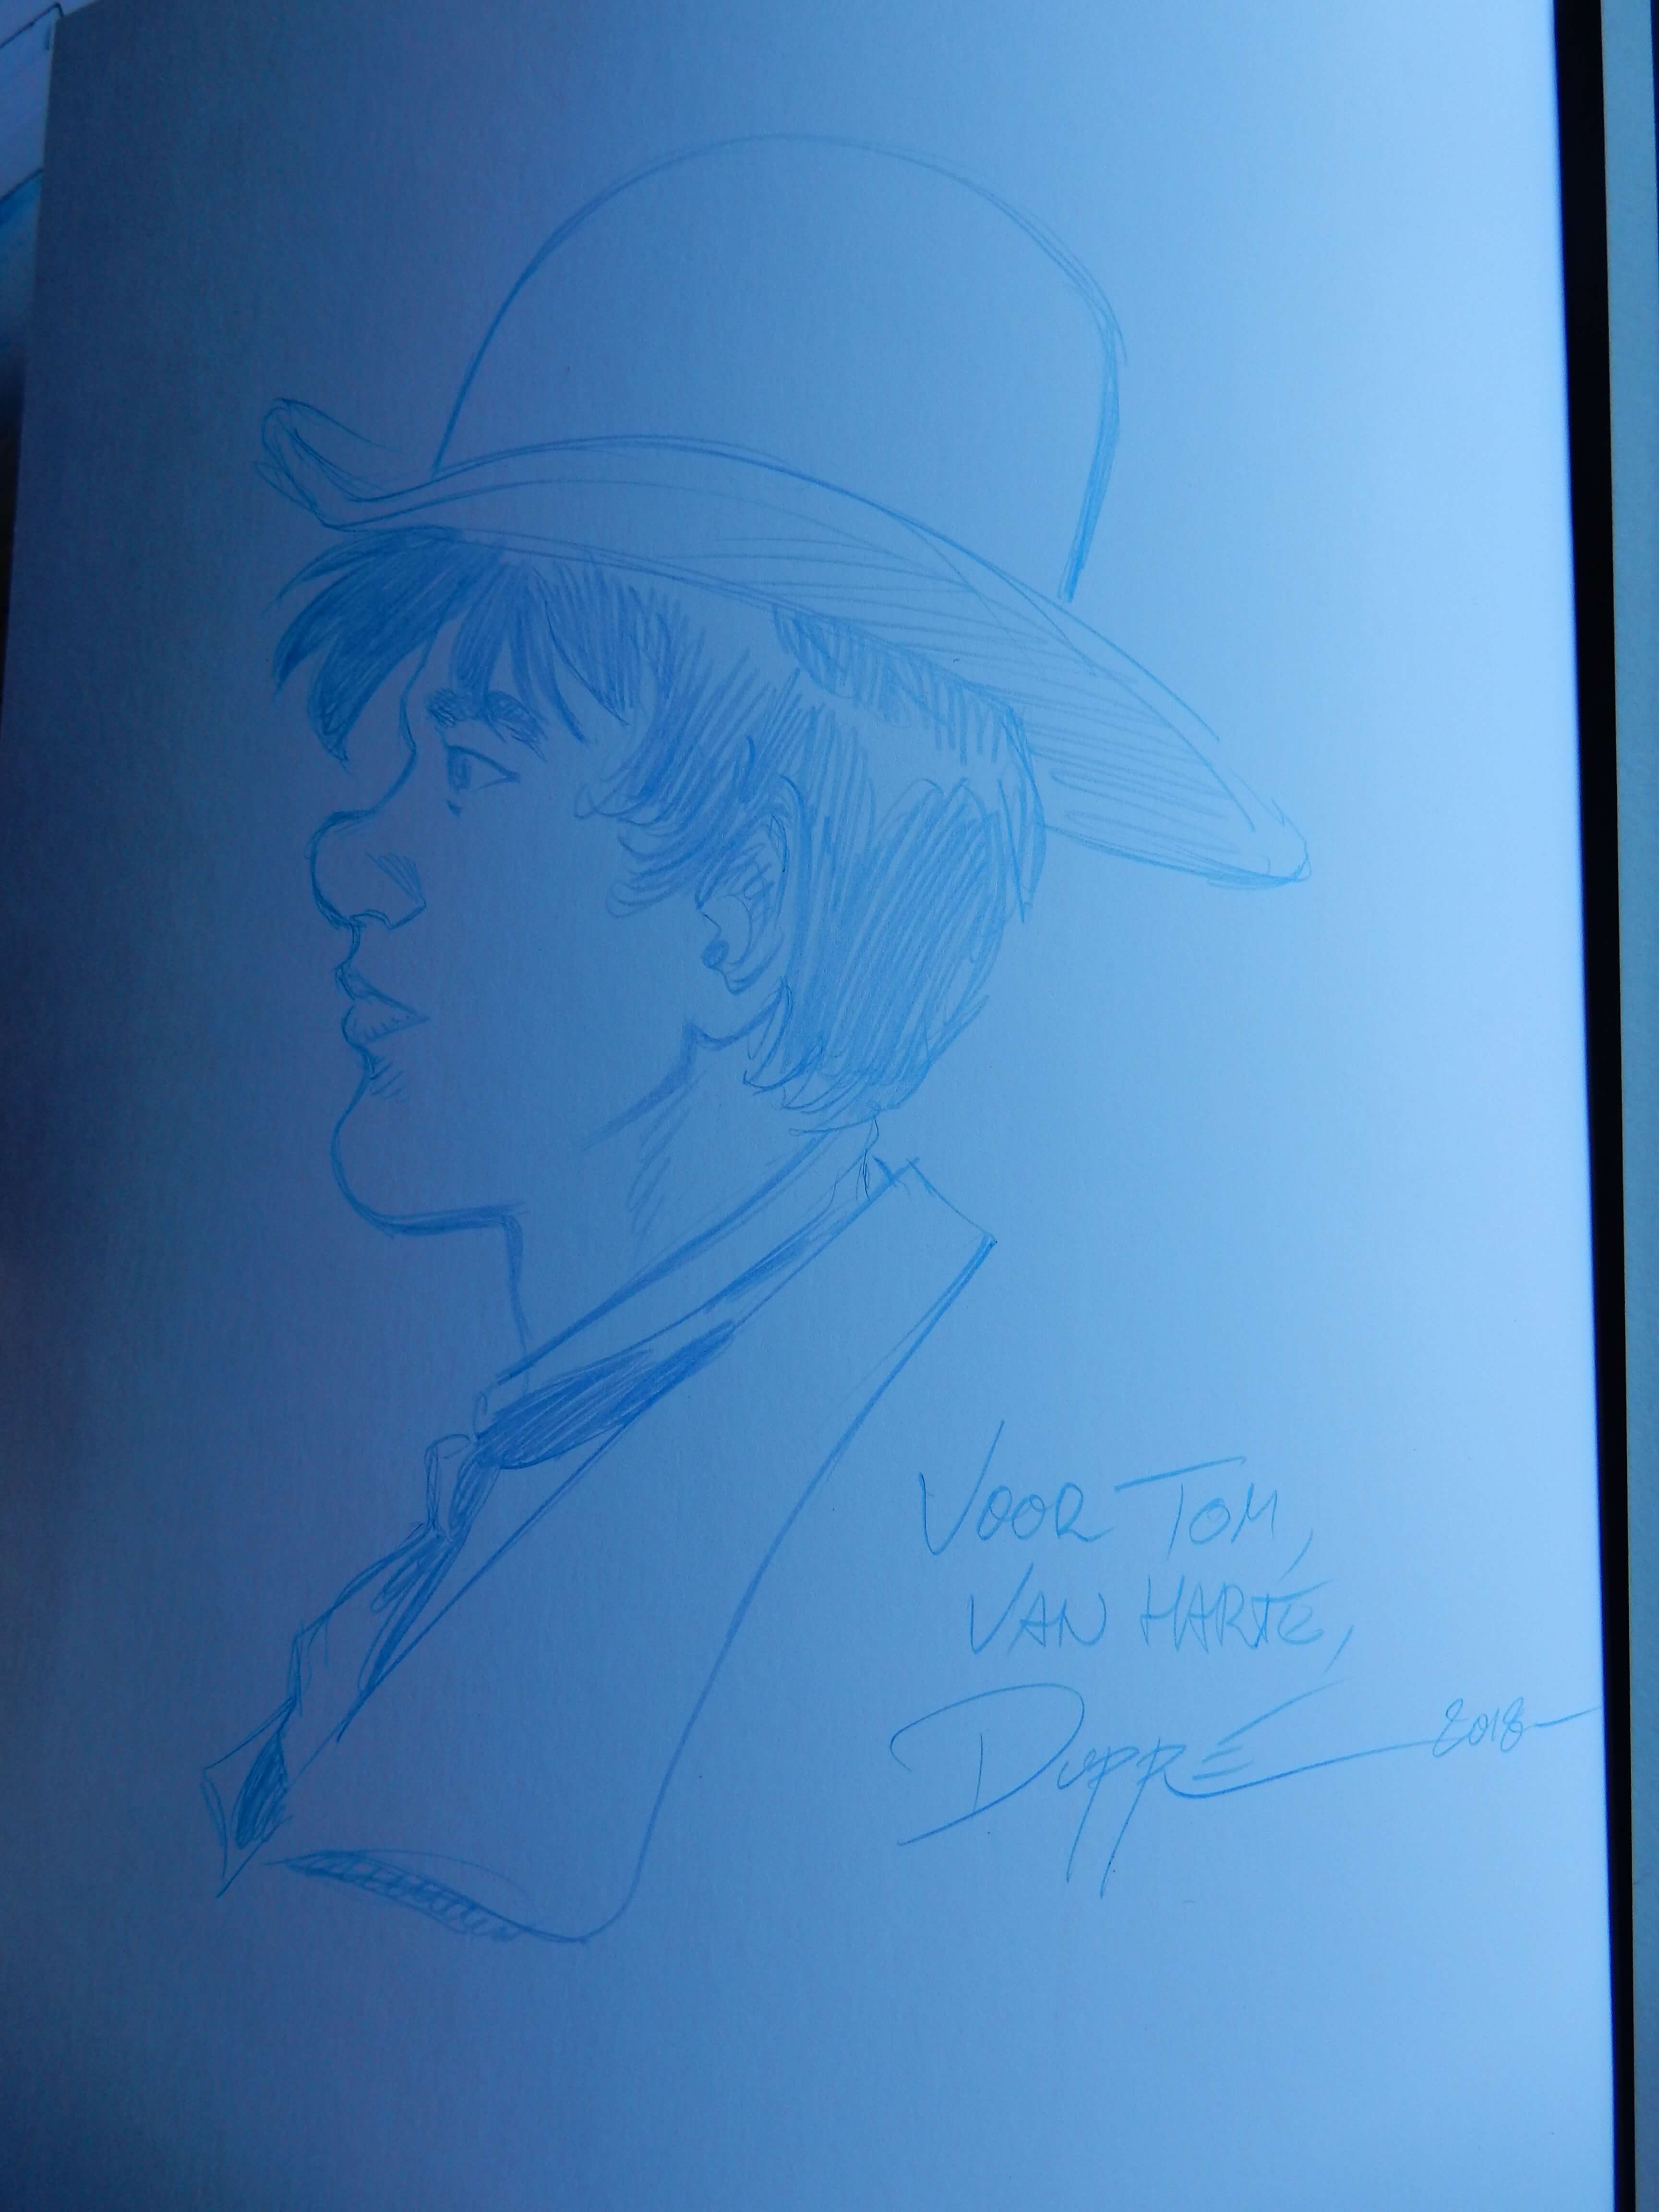 VOOR TOM,
VAN HARTE,
DUPRÉ 2018